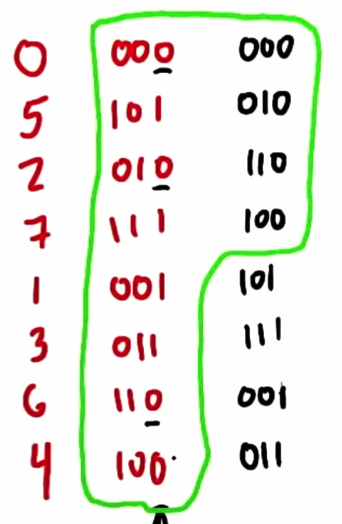 0 000 000
5 101 010
2 010 110
7 111 100
1 001 101
3 011 111
6 110 001
4 100 011